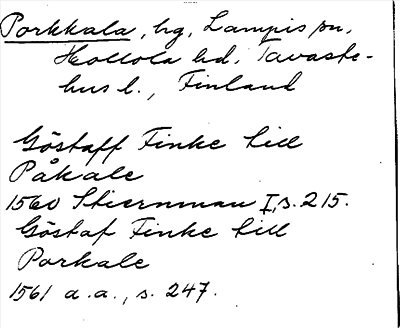 Porkkala, hg, Lampis sn,
Hollola hd, Tavaste-
hus l., Finland
Göstaff Finke till
Påkale
1560 Stiernman I, s. 215.
Göstaf Finke till
Porkale
1561 a.a., s. 247.